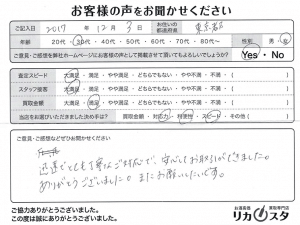 お客様の声をお聞かせください
ご記入日 2017年 12月 3日 お住いの都道府県 東京都
年齢 20代・30代・40代・50代・60代・70代・80代〜 性別 男・女
ご意見・ご感想を弊社ホームページにお客様の声として掲載させて貰ってもよろしいでしょうか? Yes・No
査定スピード 大満足・満足・やや満足・どちらでもない・やや不満・不満
スタッフ接客 大満足・満足・やや満足・どちらでもない・やや不満・不満
買取金額 大満足・満足・やや満足・どちらでもない・やや不満・不満
当店をお選びいただきました決め手は? 買取金額・対応力・利便性・スピード・その他
ご意見・ご感想などぜひお聞かせください
迅速でとても丁寧なご対応で、安心してお取引ができました。
ありがとうございました。またお願いしたいです。
ご協力ありがとうございました。
この度は誠にありがとうございました。
お酒高価買取専門店
リカスタ